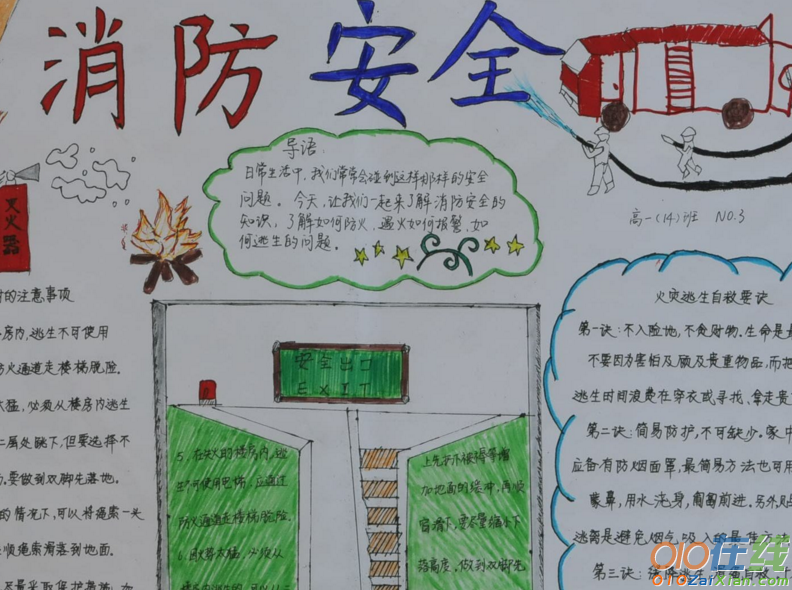 消防安全
导语：
日常生活中，我们常常会碰到这样那样的安全
问题。今天，让我们一起来了解消防安全的
知识，了解如何防火，遇火如何报警，如
何逃生的问题。
高一（14）班 NO.3
灭火器
时的注意事项
房内，逃生不可使用
防火通道走楼梯脱险.
大猛，必须从楼房内逃生
二层处跳下，但要选择不
要做到双脚先落地。
的情况下，可以将绳索一头
顺绳索滑落到地面.
尽量采取保护措施，如
安全出口
EXIT
5、在失火的楼房内，逃
生不可使用电梯，应通过
防火通道走楼梯脱险.
加地面的缓冲，再顺
窗滑下，要尽量缩小下
落高度，做到双脚先
火灾逃生自救要诀
第一诀：不入险地，不贪财物.生命是最
不要因为害怕及顾及贵重物品，而把
逃生时间浪费在穿衣或寻找、拿走贵重
第二诀：简易防护，不可缺少。家中
应备有防烟面罩，最简易方法也可用
蒙鼻，用水浇身，匍匐前进。另外
逃离是避免烟气吸入的最佳方法
第三诀：缓降逃生，滑绳自救.
010在线
010ZaiXian.com